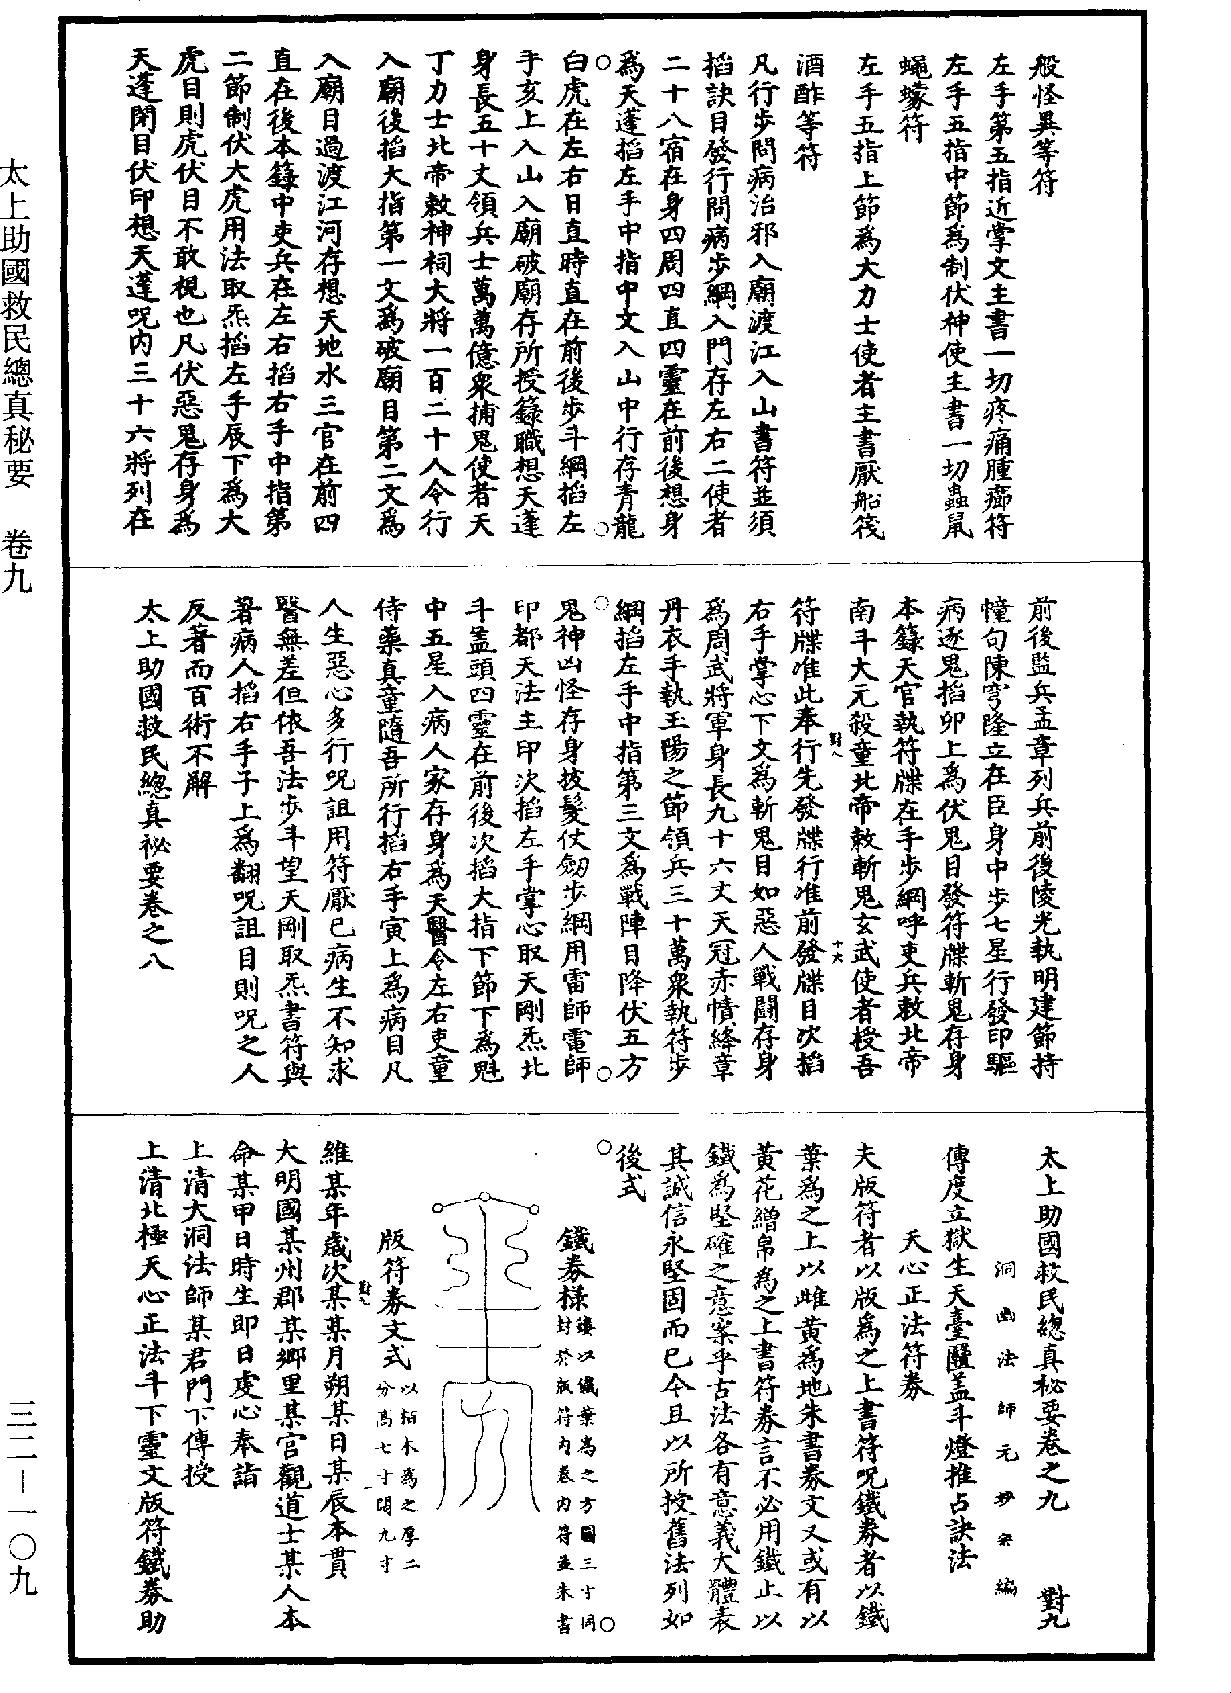 般怪異等符
左手第五指近掌文主書一切疼痛腫癤符
左手五指中節為制伏神使主書一切蟲鼠
蝇蠓符
左手五指上節為大力士使者主書厭船筏
酒酢等符
凡行步問病治邪入廟渡江入山書符並須
掐訣目發行問病步綱入門存左右二使者
二十八宿在身四周四直四靈在前後想身
為天蓬掐左手中指中文入山中行存青龍
白虎在左右日直時直在前後步斗綱掐左
手亥上入山入廟破廟存所授籙職想天蓬
身長五十丈領兵士萬萬億衆捕鬼使者天
丁力士北帝敕神祠大將一百二十人令行
入廟後掐大指第一文為破廟目第二文為
入廟目過渡江河存想天地水三官在前四
直在後本籙中吏兵在左右掐右手中指第
二節制伏大虎用法取炁掐左手辰下為大
虎目則虎伏目不敢視也凡伏惡鬼存身為
天蓬閉目伏印想天蓬呪内三十六將列在
前後監兵孟章列兵前後陵光執明建節持
幢句陳穹隆立在臣身中步七星行發印驅
病逐鬼掐卯上為伏鬼目發符牒斬鬼存身
本籙天官執符牒在手步綱呼吏兵敕北帝
南斗大元殺童北帝敕斬鬼玄武使者授吾
符牒准此奉行先發牒行准前發牒目次掐
右手掌心下文為斬鬼目如惡人戰鬪存身
為周武將軍身長九十六丈天冠赤幘絳章
丹衣手執玉陽之節領兵三十萬衆執符步
綱掐左手中指第三文為戰陣目降伏五方
鬼神凶怪存身披髮仗劒步綱用雷師電師
印都天法主印次掐左手掌心取天剛炁北
斗盖頭四靈在前後次掐大指下節下為魁
中五星入病人家存身為天醫令左右吏童
侍藥真童隨吾所行掐右手寅上為病目凡
人生惡心多行呪詛用符厭已病生不知求
醫無差但依吾法步斗望天剛取炁書符與
著病人掐右手子上為翻呪詛目則呪之人
反著而百術不解
太上助國救民總真祕要卷之八
太上助國救民總真祕要卷之九 對九
洞幽法師元妙宗編
傳度立獄生天臺醮盖斗燈推占訣法
天心正法符券
夫版符者以版為之上書符呪鐵券者以鐵
葉為之上以雌黄為地朱書券文又或有以
黄花繒帛為之上書符券言不必用鐵止以
鐵為堅確之意案乎古法各有意義大體表
其誠信永堅固而已今且以所授舊法列如
後式
鐵券樣
鏤以鐵葉為之方圓三寸同
封於版符内卷内符並朱書
版符券文式
以柏木為之厚二
分高七寸闊九寸
維某年歲次某某月朔某日某辰本貫
大明國某州郡某鄉里某官觀道士某人本
命某甲日時生即日虔心奉詣
上清大洞法師某君門下傳授
上清北極天心正法斗下靈文版符鐵券助
太上助國救民總真秘要 卷九
三二—一〇九